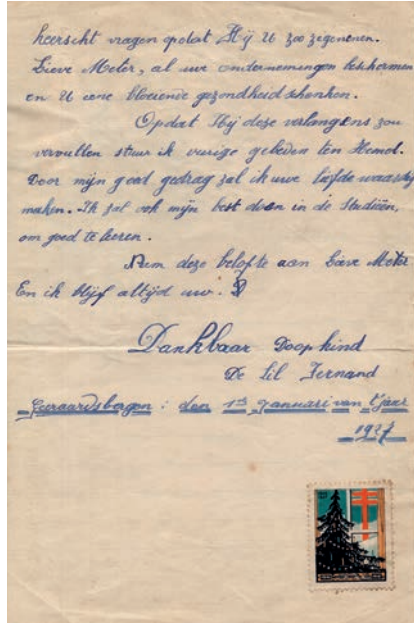 heerscht vragen opdat Hij U zoo zegenenen.
Lieve Meter, al uw ondernemingen beschermen
en U eene bloeiende gezondheid schenken.
Opdat Hij deze verlangens zou
vervullen stuur ik vurige gebeden ten Hemel.
Door mijn goed gedrag zal ik uwe liefde waardig
maken. Ik zal ook mijn best doen in de Studiën,
om goed te leeren.
Nem deze belofte aan Lieve Meter
En ik blijf altijd uw.
Dankbaar Doopkind
De Lil Fernand
Geeraardsbergen : den 1st Januari van 't jaar
1927